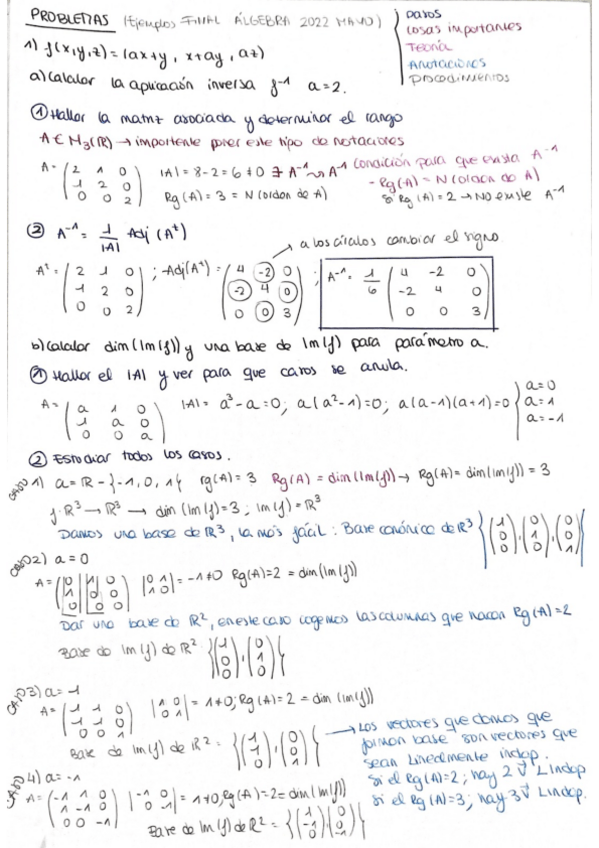 PROBLEMAS (Ejemplos FINAL ÁLGEBRA 2022 MAYO)
Pasos
Cosas importantes
Teoría
Anotaciones
Procedimientos
1) f(x,y,z)=(ax+y, x+ay, az)
a) Calcular la aplicación inversa f⁻¹ a=2.
① Hallar la matriz asociada y determinar el rango
A∈M₃(ℝ) → importante poner este tipo de notaciones
A= (2 1 0 / 1 2 0 / 0 0 2) |A|=8-2=6≠0 ∃ A⁻¹ A⁻¹ Condición para que exista A⁻¹
Rg(A)=3=N(orden de A) - Rg(A)=N(orden de A)
Si Rg(A)=2 → NO existe A⁻¹
② A⁻¹= 1/|A| Adj(Aᵗ)
→ a los círculos cambiar el signo
Aᵗ= (2 1 0 / 1 2 0 / 0 0 2); -Adj(Aᵗ)= (4 -2 0 / -2 4 0 / 0 0 3); A⁻¹= 1/6 (4 -2 0 / -2 4 0 / 0 0 3)
b) Calcular dim(Im(f)) y una base de Im(f) para parámetro a.
① Hallar el |A| y ver para que casos se anula.
A= (a 1 0 / 1 a 0 / 0 0 a) |A|= a³-a=0; a(a²-1)=0; a(a-1)(a+1)=0 { a=0 a=1 a=-1
② Estudiar todos los casos.
CASO 1) a=ℝ-{-1,0,1} rg(A)=3 Rg(A)=dim(Im(f)) → Rg(A)=dim(Im(f))=3
f:ℝ³→ℝ³ → dim(Im(f))=3; Im(f)=ℝ³
Damos una base de ℝ³, la más fácil: Base canónica de ℝ³ {(1 0 0),(0 1 0),(0 0 1)}
CASO 2) a=0
A= (0 1 0 / 1 0 0 / 0 0 0) |0 1 / 1 0| = -1≠0 Rg(A)=2=dim(Im(f))
Dar una base de ℝ², en este caso cogemos las columnas que hacen Rg(A)=2
Base de Im(f) de ℝ² {(1 0 0),(0 1 0)}
CASO 3) a=1
A= (1 1 0 / 1 1 0 / 0 0 1) |1 0 / 0 1| = 1≠0; Rg(A)=2=dim(Im(f))
Base de Im(f) de ℝ² = {(1 1 0),(0 0 1)}
→ Los vectores que damos que
forman base son vectores que
sean linealmente indep.
Si el Rg(A)=2; hay 2 v⃗ L indep
Si el Rg(A)=3; hay 3 v⃗ L indep.
CASO 4) a=-1
A= (-1 1 0 / 1 -1 0 / 0 0 -1) |-1 0 / 0 -1| = 1≠0, Rg(A)=2=dim(Im(f))
Base de Im(f) de ℝ² = {(1 -1 0),(0 0 -1)}